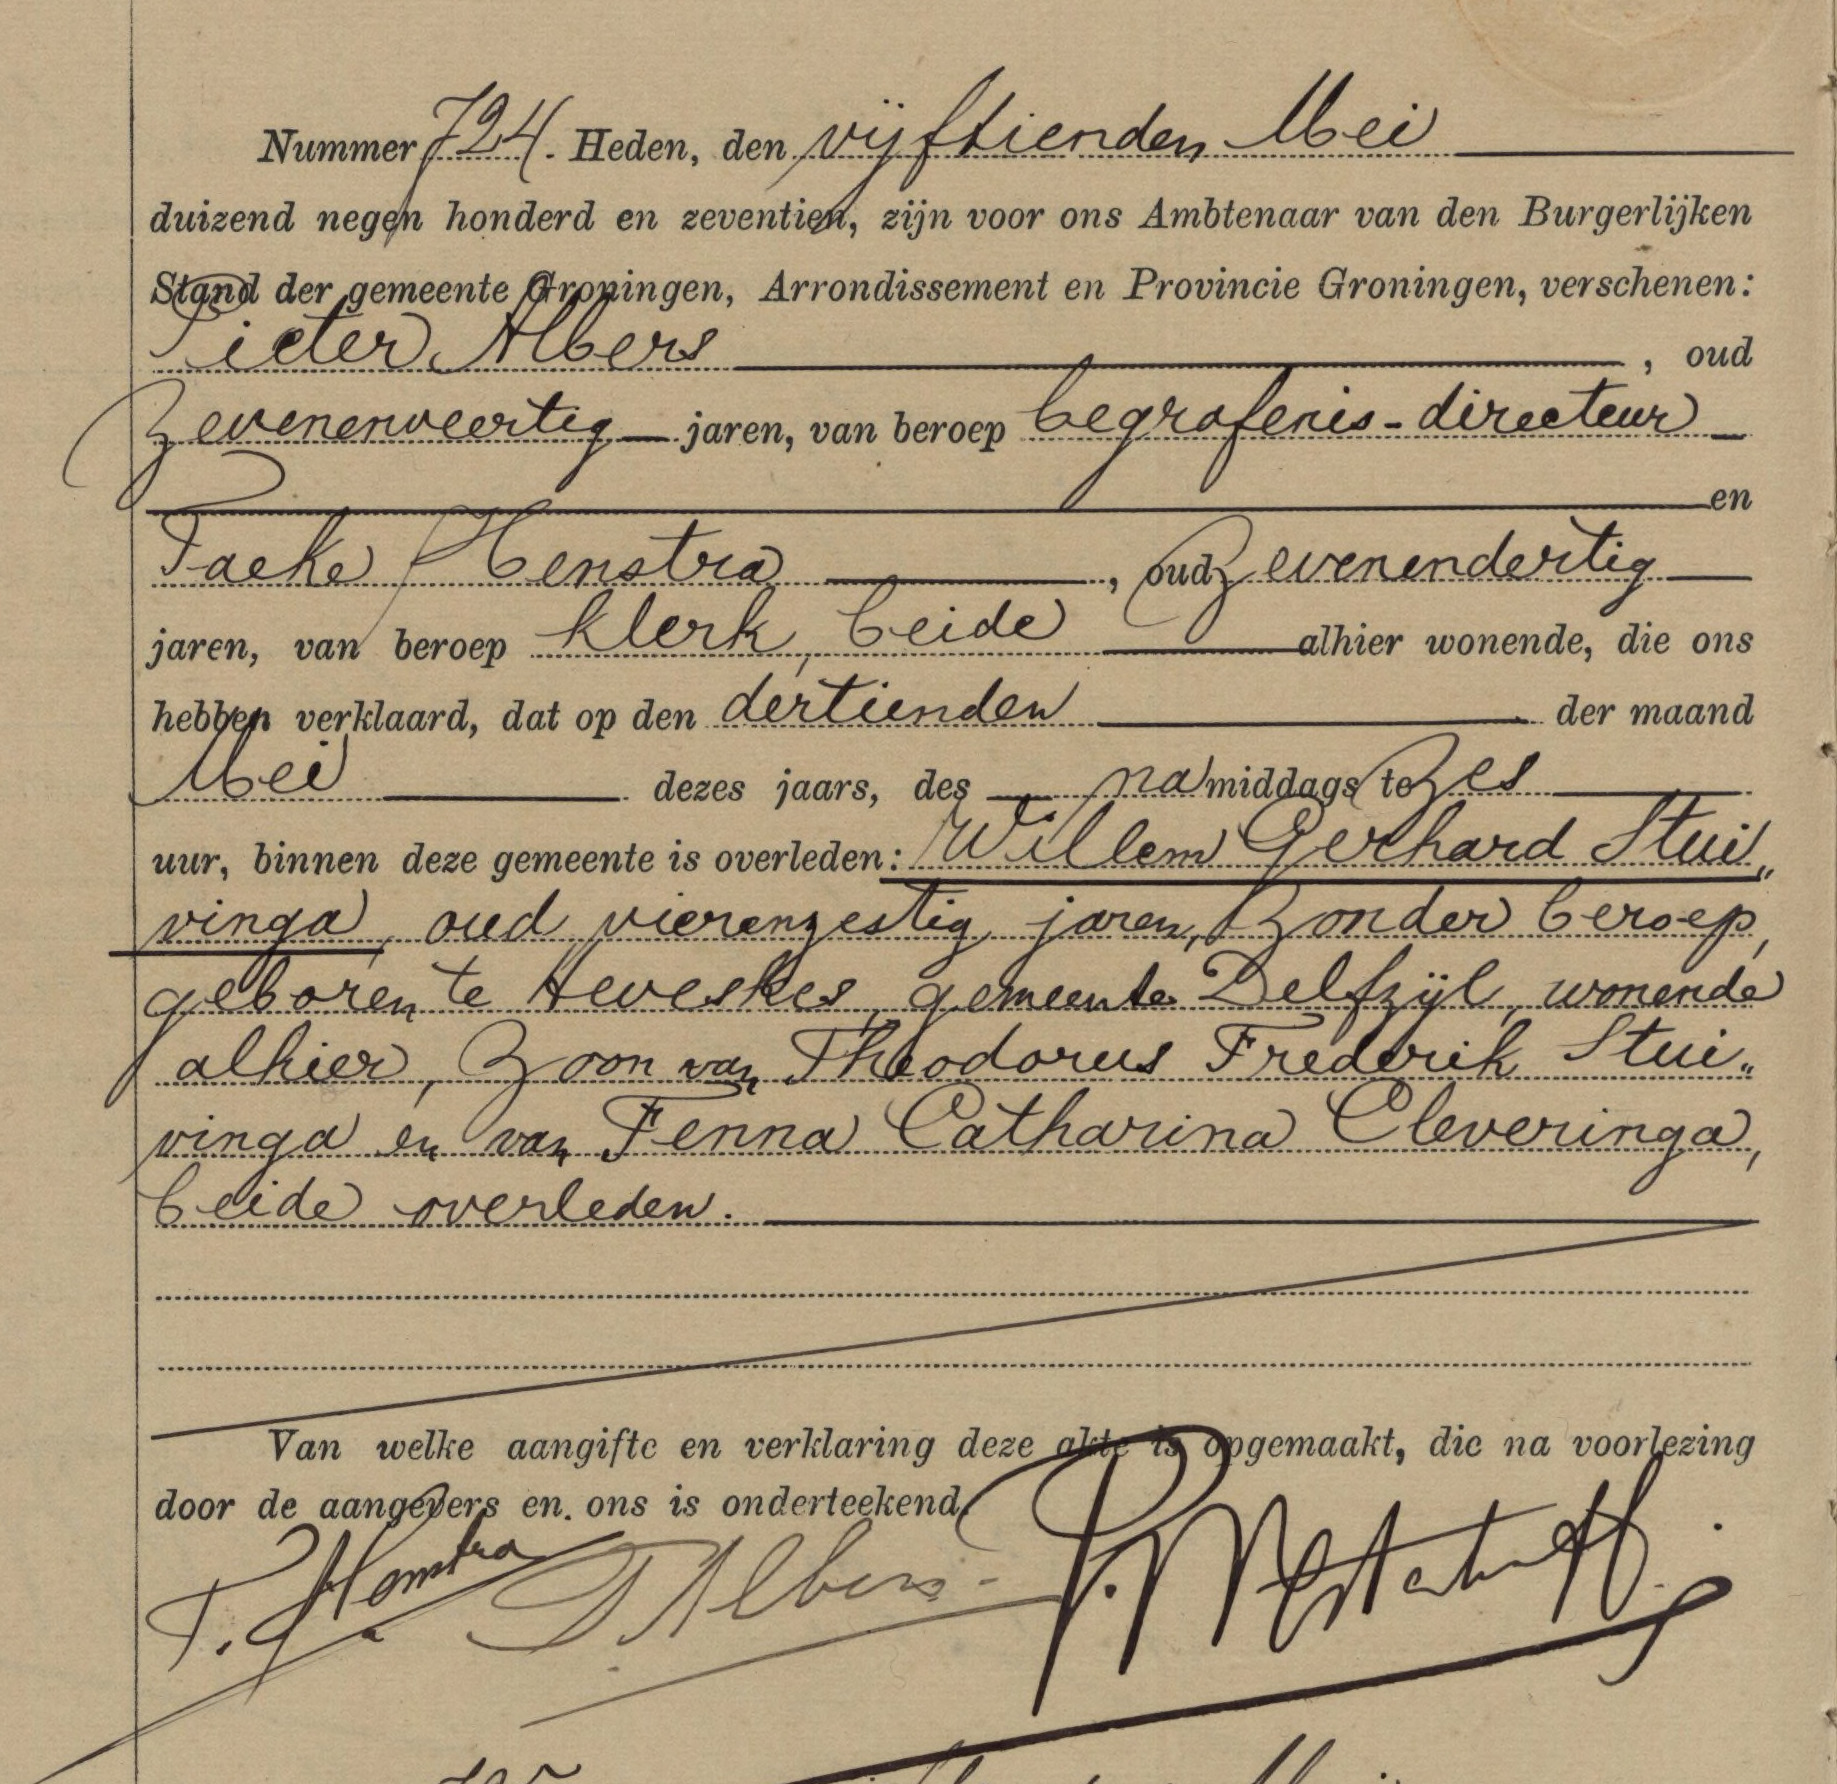 Nummer 724. Heden, den vijftienden Mei
duizend negen honderd en zeventien, zijn voor ons Ambtenaar van den Burgerlijken
Stand der gemeente Groningen, Arrondissement en Provincie Groningen, verschenen:
Pieter Albers, oud
zevenenveertig jaren, van beroep begrafenis-directeur
en
Taeke Henstra, oud zevenendertig
jaren, van beroep klerk, beide alhier wonende, die ons
hebben verklaard, dat op den dertienden der maand
Mei dezes jaars, des namiddags te zes
uur, binnen deze gemeente is overleden: Willem Gerhard Stui„
vinga, oud vierenzestig jaren, zonder beroep,
geboren te Heveskes, gemeente Delfzijl, wonende
alhier, zoon van Theodorus Frederik Stui„
vinga en van Fenna Catharina Cleveringa,
beide overleden.
Van welke aangifte en verklaring deze akte is opgemaakt, die na voorlezing
door de aangevers en ons is onderteekend.
T. Henstra P Albers